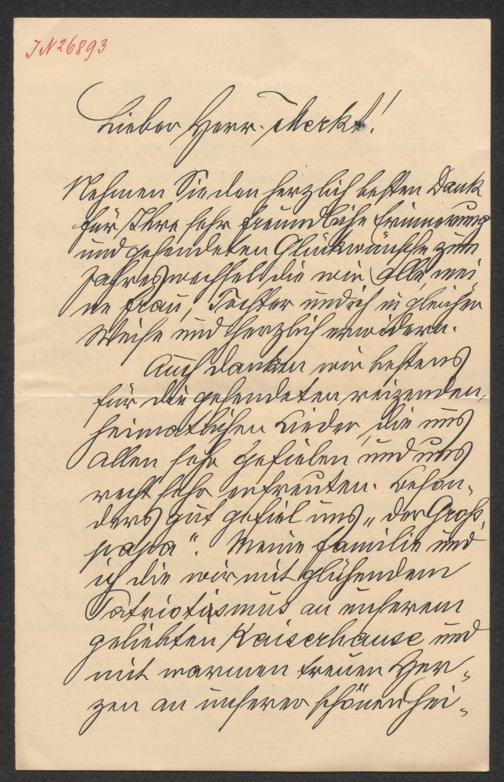 JN 26893
Lieber Herr Merkt!
Nehmen Sie den herzlich besten Dank
für Ihre sehr freundliche Erinnerung
und gesendeten Glückwünsche zum
Jahreswechsel die wir alle, mei
ne Frau, Tochter und ich in gleicher
Weise und herzlich erwidern.
Auch danken wir bestens
für die gesendeten reizenden
heimatlichen Lieder, die uns
allen sehr gefielen und uns
recht sehr erfreuten. Beson-
ders gut gefiel uns „der Groß
papa". Meine Familie und
ich die wir mit glühendem
Patriotismus an unserem
geliebten Kaiserhause und
mit warmen treuen Her-
zen an unserer schönen Hei-